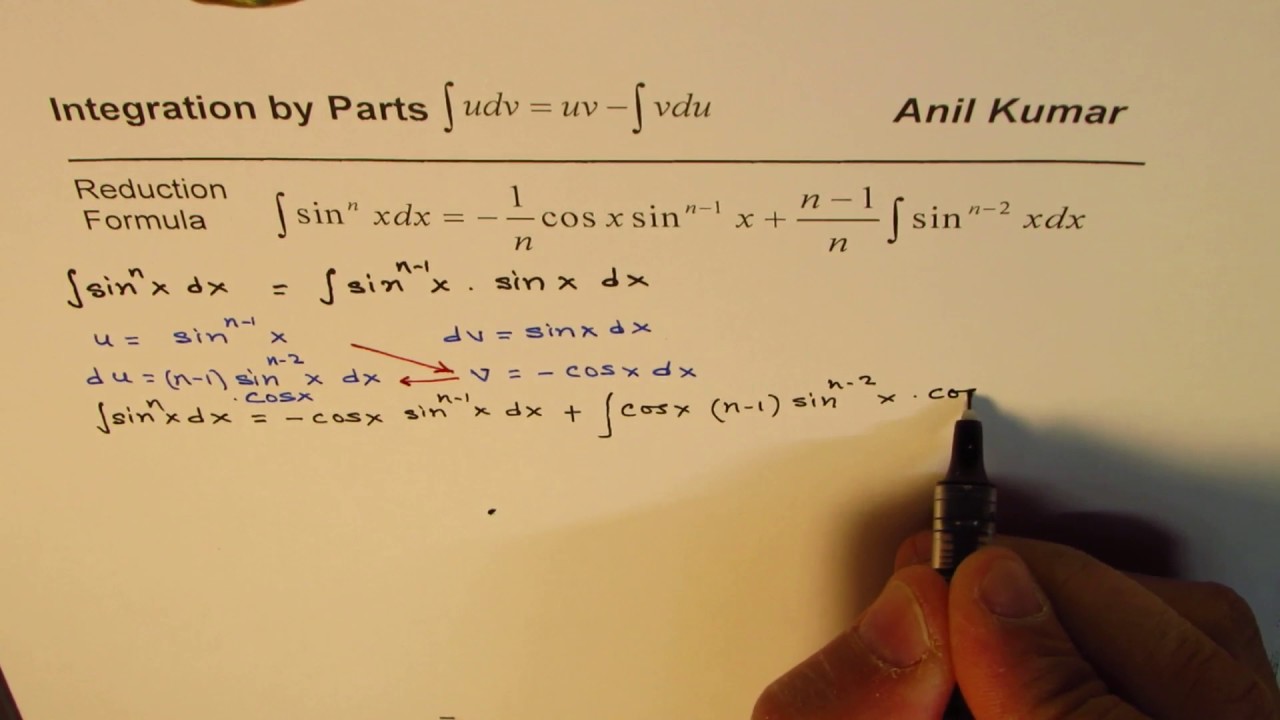 Integration by Parts ∫udv = uv − ∫vdu Anil Kumar
Reduction Formula ∫ sinⁿ xdx = − 1/n cos x sinⁿ⁻¹ x + (n − 1)/n ∫ sinⁿ⁻² xdx
∫sinⁿx dx = ∫sinⁿ⁻¹x . sin x dx
u = sinⁿ⁻¹ x dv = sinx dx
du = (n-1) sinⁿ⁻² x dx v = - cosx dx
. cosx
∫sinⁿx dx = - cosx sinⁿ⁻¹x dx + ∫cosx (n-1) sinⁿ⁻² x . co